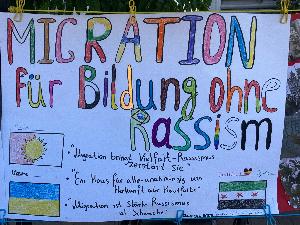 MIGRATION
für Bildung ohne
Rassism
"Migration bringt Vielfalt-Rassismus
zerstört Sie
"Ein Haus für alle-unabhängig von
Herkunft oder Hautfarbe"
"Migration ist Stärke Rassismus
ist Schwäche"